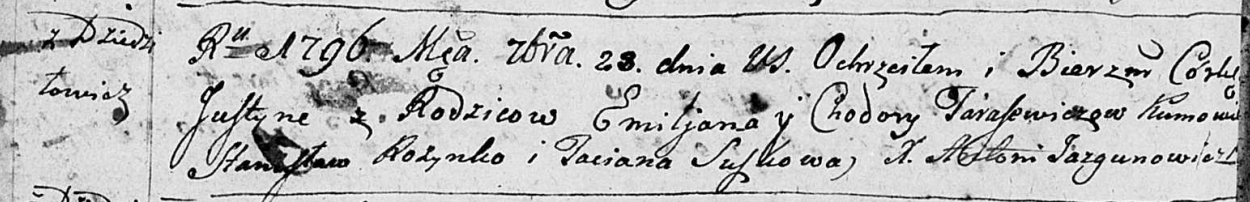 z Dziedzi
łowicz
Rᵘ 1796. Mca. 7bra. 28. dnia WS. Ochrzciłem i Bierzm Corkę
Justynę z Rodzicow Emiljana y Chodory Tarasewiczow Kumowie
Stanisław Rożynko i Taciana Suszkowa, X. Antoni Jazgunowicz